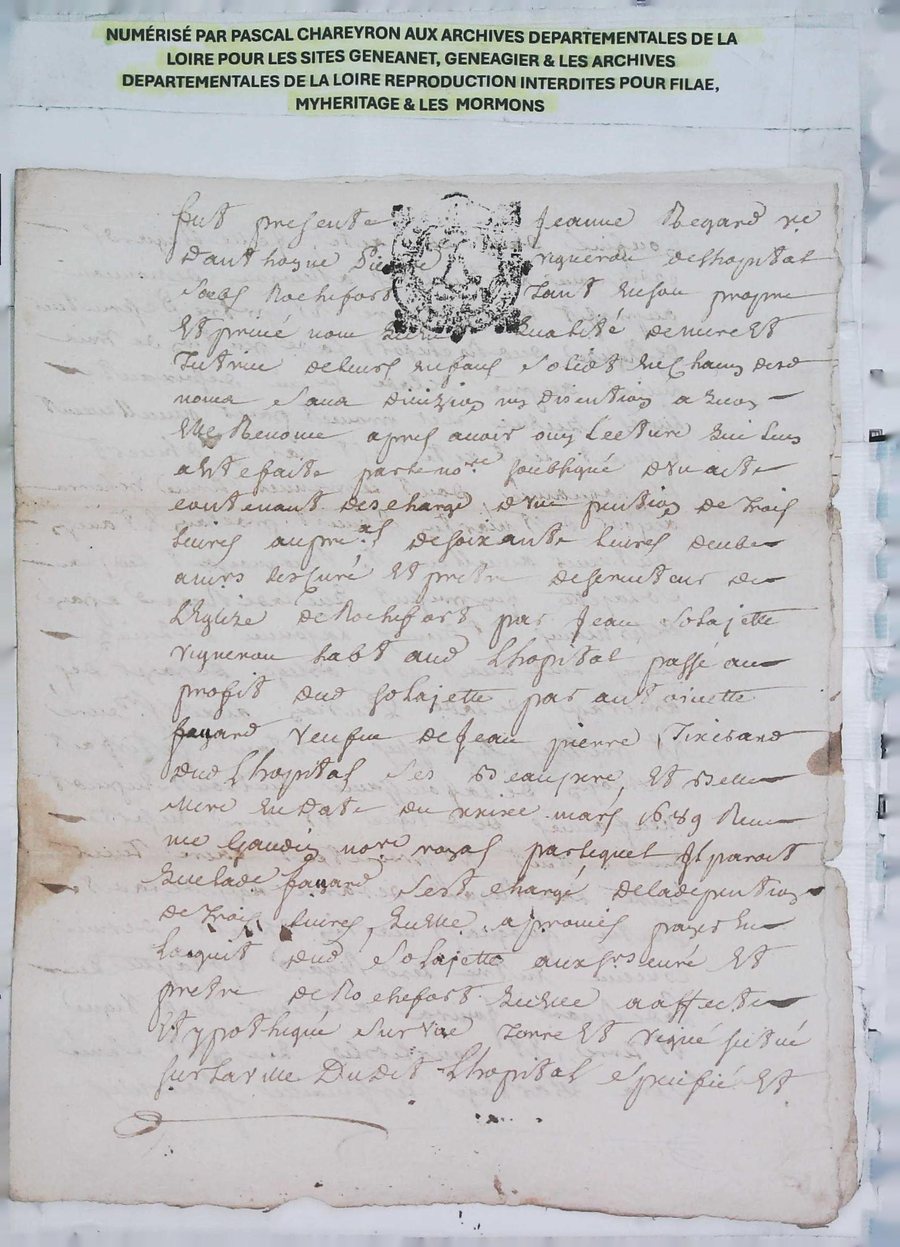 NUMÉRISÉ PAR PASCAL CHAREYRON AUX ARCHIVES DEPARTEMENTALES DE LA
LOIRE POUR LES SITES GENEANET, GENEAGIER & LES ARCHIVES
DEPARTEMENTALES DE LA LOIRE REPRODUCTION INTERDITES POUR FILAE,
MYHERITAGE & LES MORMONS
fut presente Jeanne Regard ve
danthoyne vigneron delhopital
soubs Rochefort tant en son propre
Et privé nom qualité de mere Et
tutrice de leurs enfans
nome sans division ny
Elle Renonce apres avoir ouy Lecture qui luy
a Este faite par le nore soubsigné dun acte
contenant descharge dune pention de trois
livres au pre~al de soixante livres deube
curé Et pretre deserviteur de
LEglize de Rochefort par Jean Solajette
vigneron habt aud Lhopital passé au
profit dud Solajette par antoinette
fayard veufve de Jean pierre
dud Lhopital ses Beaupere Et Belle
Mere En Date du mars 1689 Receu
me Gaudin nore royal par lequel Jl paroit
que lade fayard sest chargé delade pention
de trois livres quelle a promis payer En
Lacquit dud Solajette aux srs curé Et
pretre de Rochefort quelle a affecte
Et ypothequé sur une terre Et vigne situé
sur la ville Dudit Lhopital Et